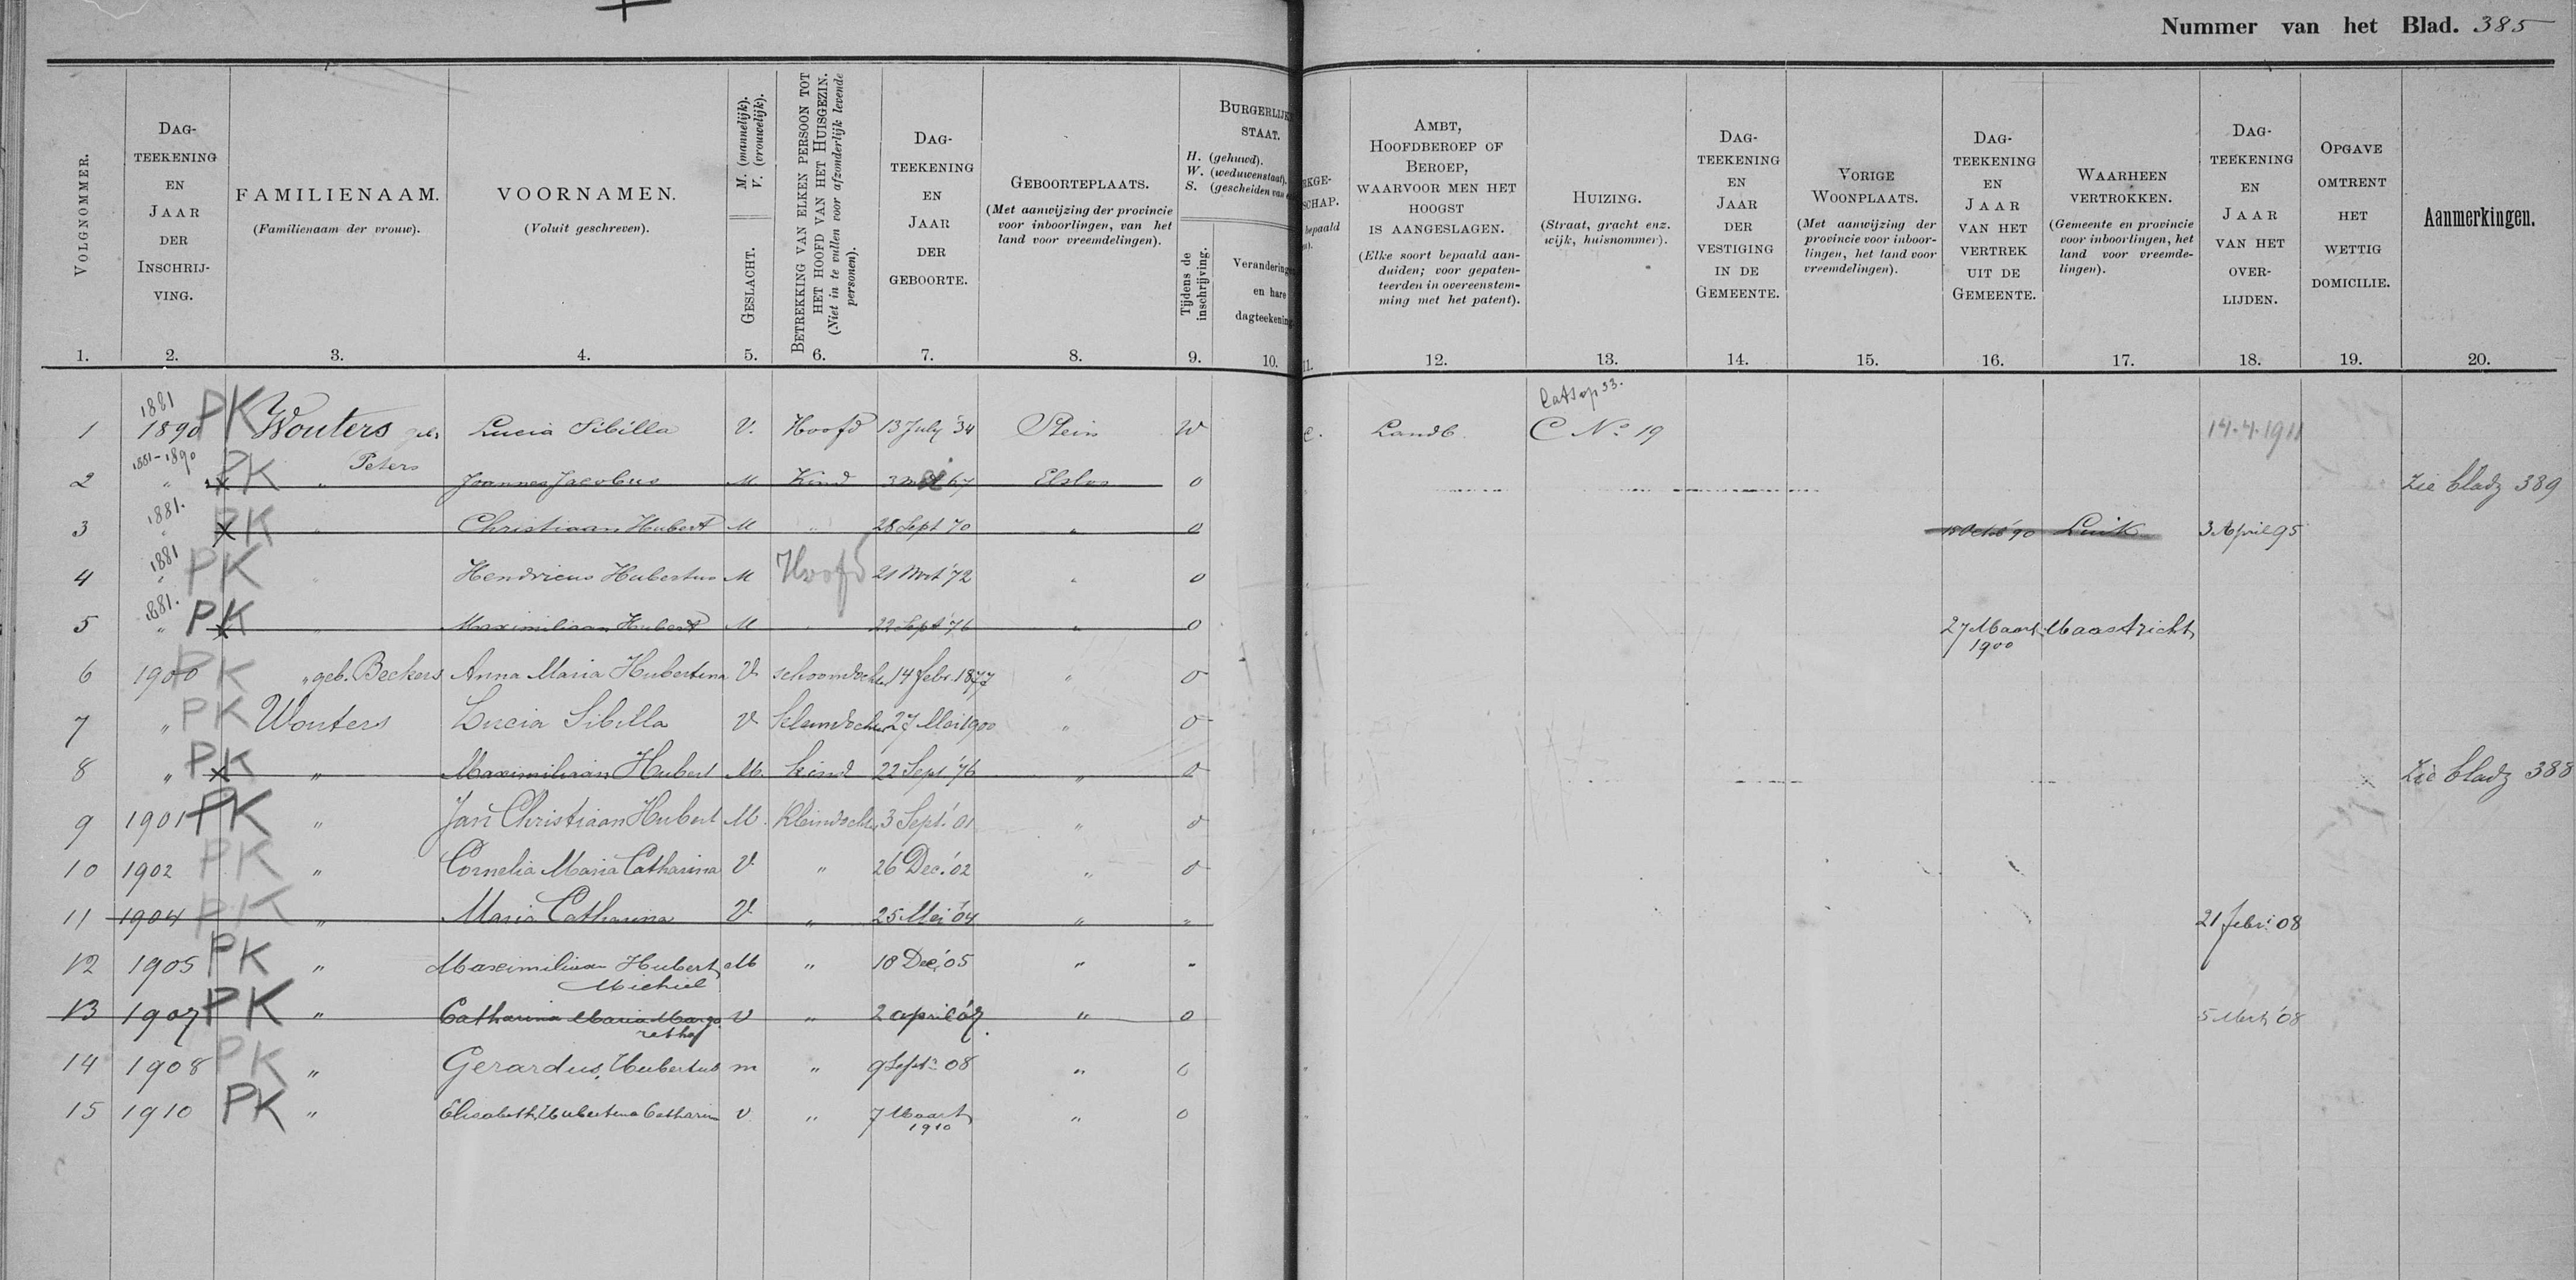 Nummer van het Blad. 385
VOLGNOMMER.
DAG-
TEEKENING
EN
JAAR
DER
INSCHRIJ-
VING.
FAMILIENAAM.
(Familienaam der vrouw).
VOORNAMEN.
(Voluit geschreven).
M. (mannelijk).
V. (vrouwelijk).
GESLACHT.
BETREKKING VAN ELKEN PERSOON TOT
HET HOOFD VAN HET HUISGEZIN.
(Niet in te vullen voor afzonderlijk levende
personen).
DAG-
TEEKENING
EN
JAAR
DER
GEBOORTE.
GEBOORTEPLAATS.
(Met aanwijzing der provincie
voor inboorlingen, van het
land voor vreemdelingen).
BURGERLIJKE
STAAT.
H. (gehuwd).
W. (weduwenstaat).
S. (gescheiden van
Tijdens de
inschrijving.
Veranderingen
en hare
dagteekening
RKGE-
SCHAP.
bepaald
AMBT,
HOOFDBEROEP OF
BEROEP,
WAARVOOR MEN HET
HOOGST
IS AANGESLAGEN.
(Elke soort bepaald aan-
duiden; voor gepaten-
teerden in overeenstem-
ming met het patent).
HUIZING.
(Straat, gracht enz.
wijk, huisnommer).
DAG-
TEEKENING
EN
JAAR
DER
VESTIGING
IN DE
GEMEENTE.
VORIGE
WOONPLAATS.
(Met aanwijzing der
provincie voor inboor-
lingen, het land voor
vreemdelingen).
DAG-
TEEKENING
EN
JAAR
VAN HET
VERTREK
UIT DE
GEMEENTE.
WAARHEEN
VERTROKKEN.
(Gemeente en provincie
voor inboorlingen, het
land voor vreemde-
lingen).
DAG-
TEEKENING
EN
JAAR
VAN HET
OVER-
LIJDEN.
OPGAVE
OMTRENT
HET
WETTIG
DOMICILIE.
Aanmerkingen.
1. 2. 3. 4. 5. 6. 7. 8. 9. 10. 11. 12. 13. 14. 15. 16. 17. 18. 19. 20.
1881 Catsop 33.
1 1890 PK Wouters geb. Lucia Sibilla V. Hoofd 13 July '34 Stein W Landb. C No 19 14.4.1911
1881-1890 Peters
2 " PK " Joannes Jacobus M Kind 3 Mei 67 Elsloo O Zie bladz 389
1881.
3 " PK " Christiaan Hubert M " 28 Sept 70 " O Luik 3 April 95
1881
4 " PK " Hendricus Hubertus M Hoofd 21 '72 " O
1881.
5 " PK " Maximiliaan Hubert M " 22 Sept '76 " O 27 Maart Maastricht
1900
6 1900 PK " geb. Beckers Anna Maria Hubertina V schoondochter 14 febr. 1877 " O
7 " PK Wouters Lucia Sibilla V 27 Mei 1900 " O
8 " PK " Maximiliaan Hubert M. kind 22 Sept '76 " O Zie bladz 388
9 1901 PK " Jan Christiaan Hubert M. Kleindochter 3 Sept. '01 " O
10 1902 PK " Cornelia Maria Catharina V " 26 Dec. '02 " O
11 1904 PK " Maria Catharina V. " 25 Mei '04 " " 21 febr. 08
12 1905 PK " Maximiliaan Hubert M " 18 Dec. '05 " "
Michiel
13 1907 PK " Catharina Maria Marga V " 2 april '07. " O 5 Mrt '08
retha
14 1908 PK " Gerardus Hubertus m " 9 Sept. 08 " O
15 1910 PK " Elisabeth Hubertina Catharina V " 7 Maart " O
1910